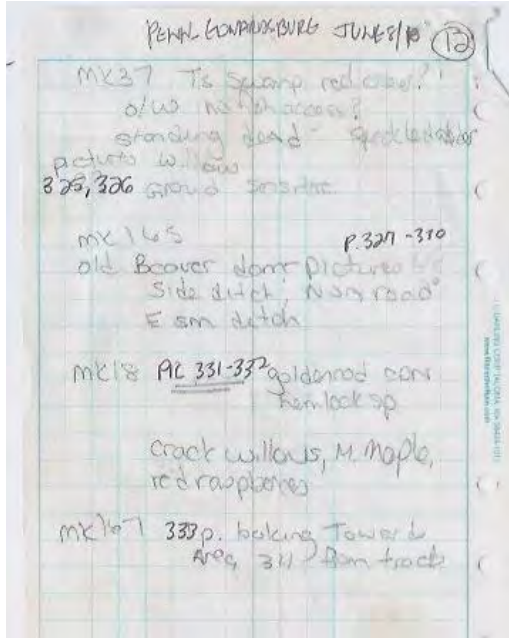 PENN-EDWARDSBURG JUNE 8/10 12
MK37 Is swamp red
o/w no ton access?
standing dead - speckled alder
pictures willow
325, 326 Ground
MK165 P.327 - 330
old Beaver dam Pictures
Side ditch, N sm road
E sm ditch
MK18 PIC 331-332 goldenrod
hemlock sp
crack willows, M. Maple,
red raspberries
MK167 333 p. looking Toward
Area 311 from track